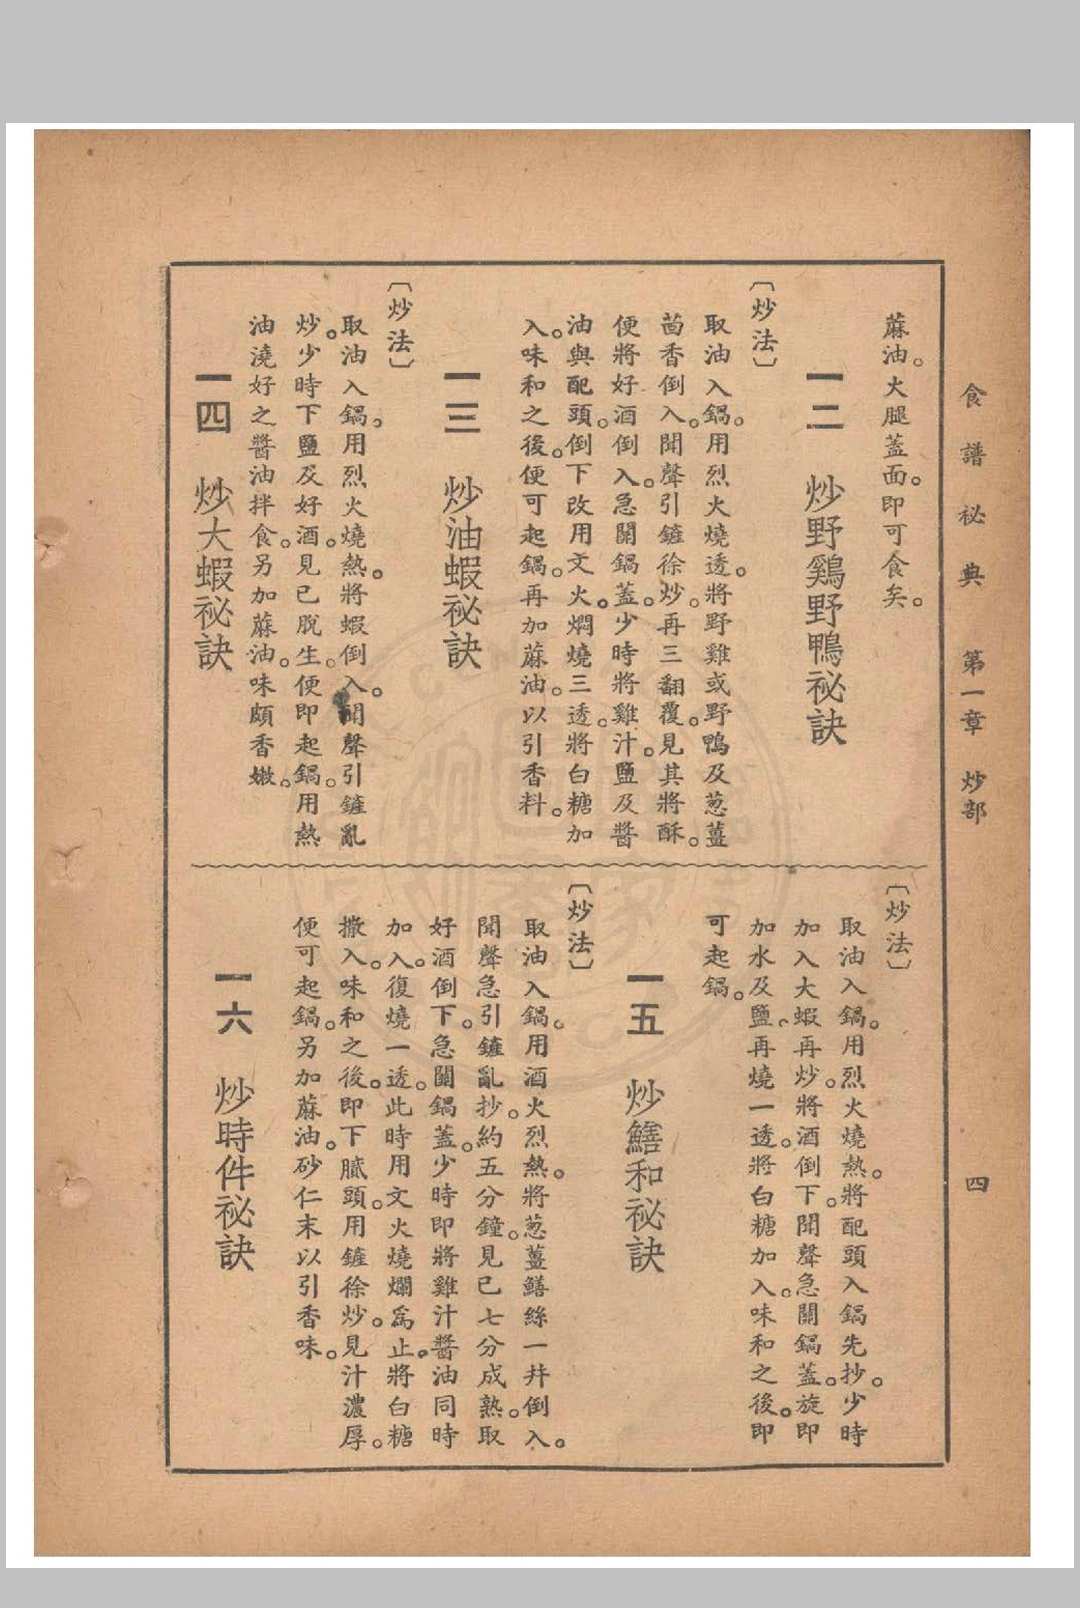 食譜祕典 第一章 炒部 四
蔴油。火腿蓋面。即可食矣。
一二 炒野鷄野鴨祕訣
〔炒法〕
取油入鍋。用烈火燒透。將野雞或野鴨及葱薑
茴香倒入。聞聲引鏟徐炒。再三翻覆。見其將酥。
便將好酒倒入。急關鍋蓋。少時將雞汁。鹽及醬
油與配頭。倒下改用文火。燜燒三透。將白糖加
入。味和之後。便可起鍋。再加蔴油。以引香料。
一三 炒油蝦祕訣
〔炒法〕
取油入鍋。用烈火燒熱。將蝦倒入。聞聲引鏟亂
炒。少時下鹽及好酒。見已脫生。便即起鍋。用熱
油澆好之醬油拌食。另加蔴油。味頗香嫩。
一四 炒大蝦祕訣
〔炒法〕
取油入鍋。用烈火燒熱。將配頭入鍋先抄。少時
加入大蝦再炒。將酒倒下。聞聲急關鍋蓋。旋即
加水及鹽。再燒一透。將白糖加入。味和之後。即
可起鍋。
一五 炒鱔和祕訣
〔炒法〕
取油入鍋。用酒火烈熱。將葱薑鱔絲一幷倒入。
聞聲急引鏟亂抄。約五分鐘。見已七分成熟。取
好酒倒下。急關鍋蓋。少時即將雞汁醬油同時
加入。復燒一透。此時用文火燒爛爲止。將白糖
撒入。味和之後。即下膩頭。用鏟徐炒。見汁濃厚。
便可起鍋。另加蔴油。砂仁末以引香味。
一六 炒時件祕訣